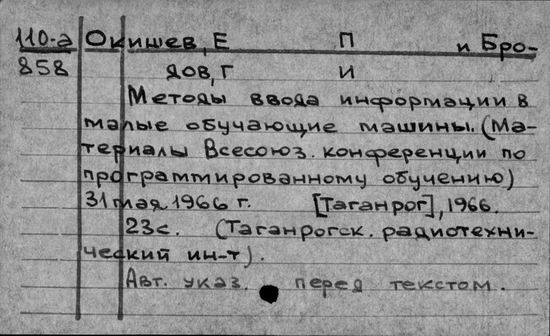 110-а Окишев, Е П и Бро-
858 дов, Г И
Методы ввода информации в
малые обучающие машины. (Ма-
териалы Всесоюз. конференции по
программированному обучению)
31 мая 1966 г. [Таганрог], 1966.
23с. (Таганрогск. радиотехни-
ческий ин-т).
Авт. указ. перед текстом.